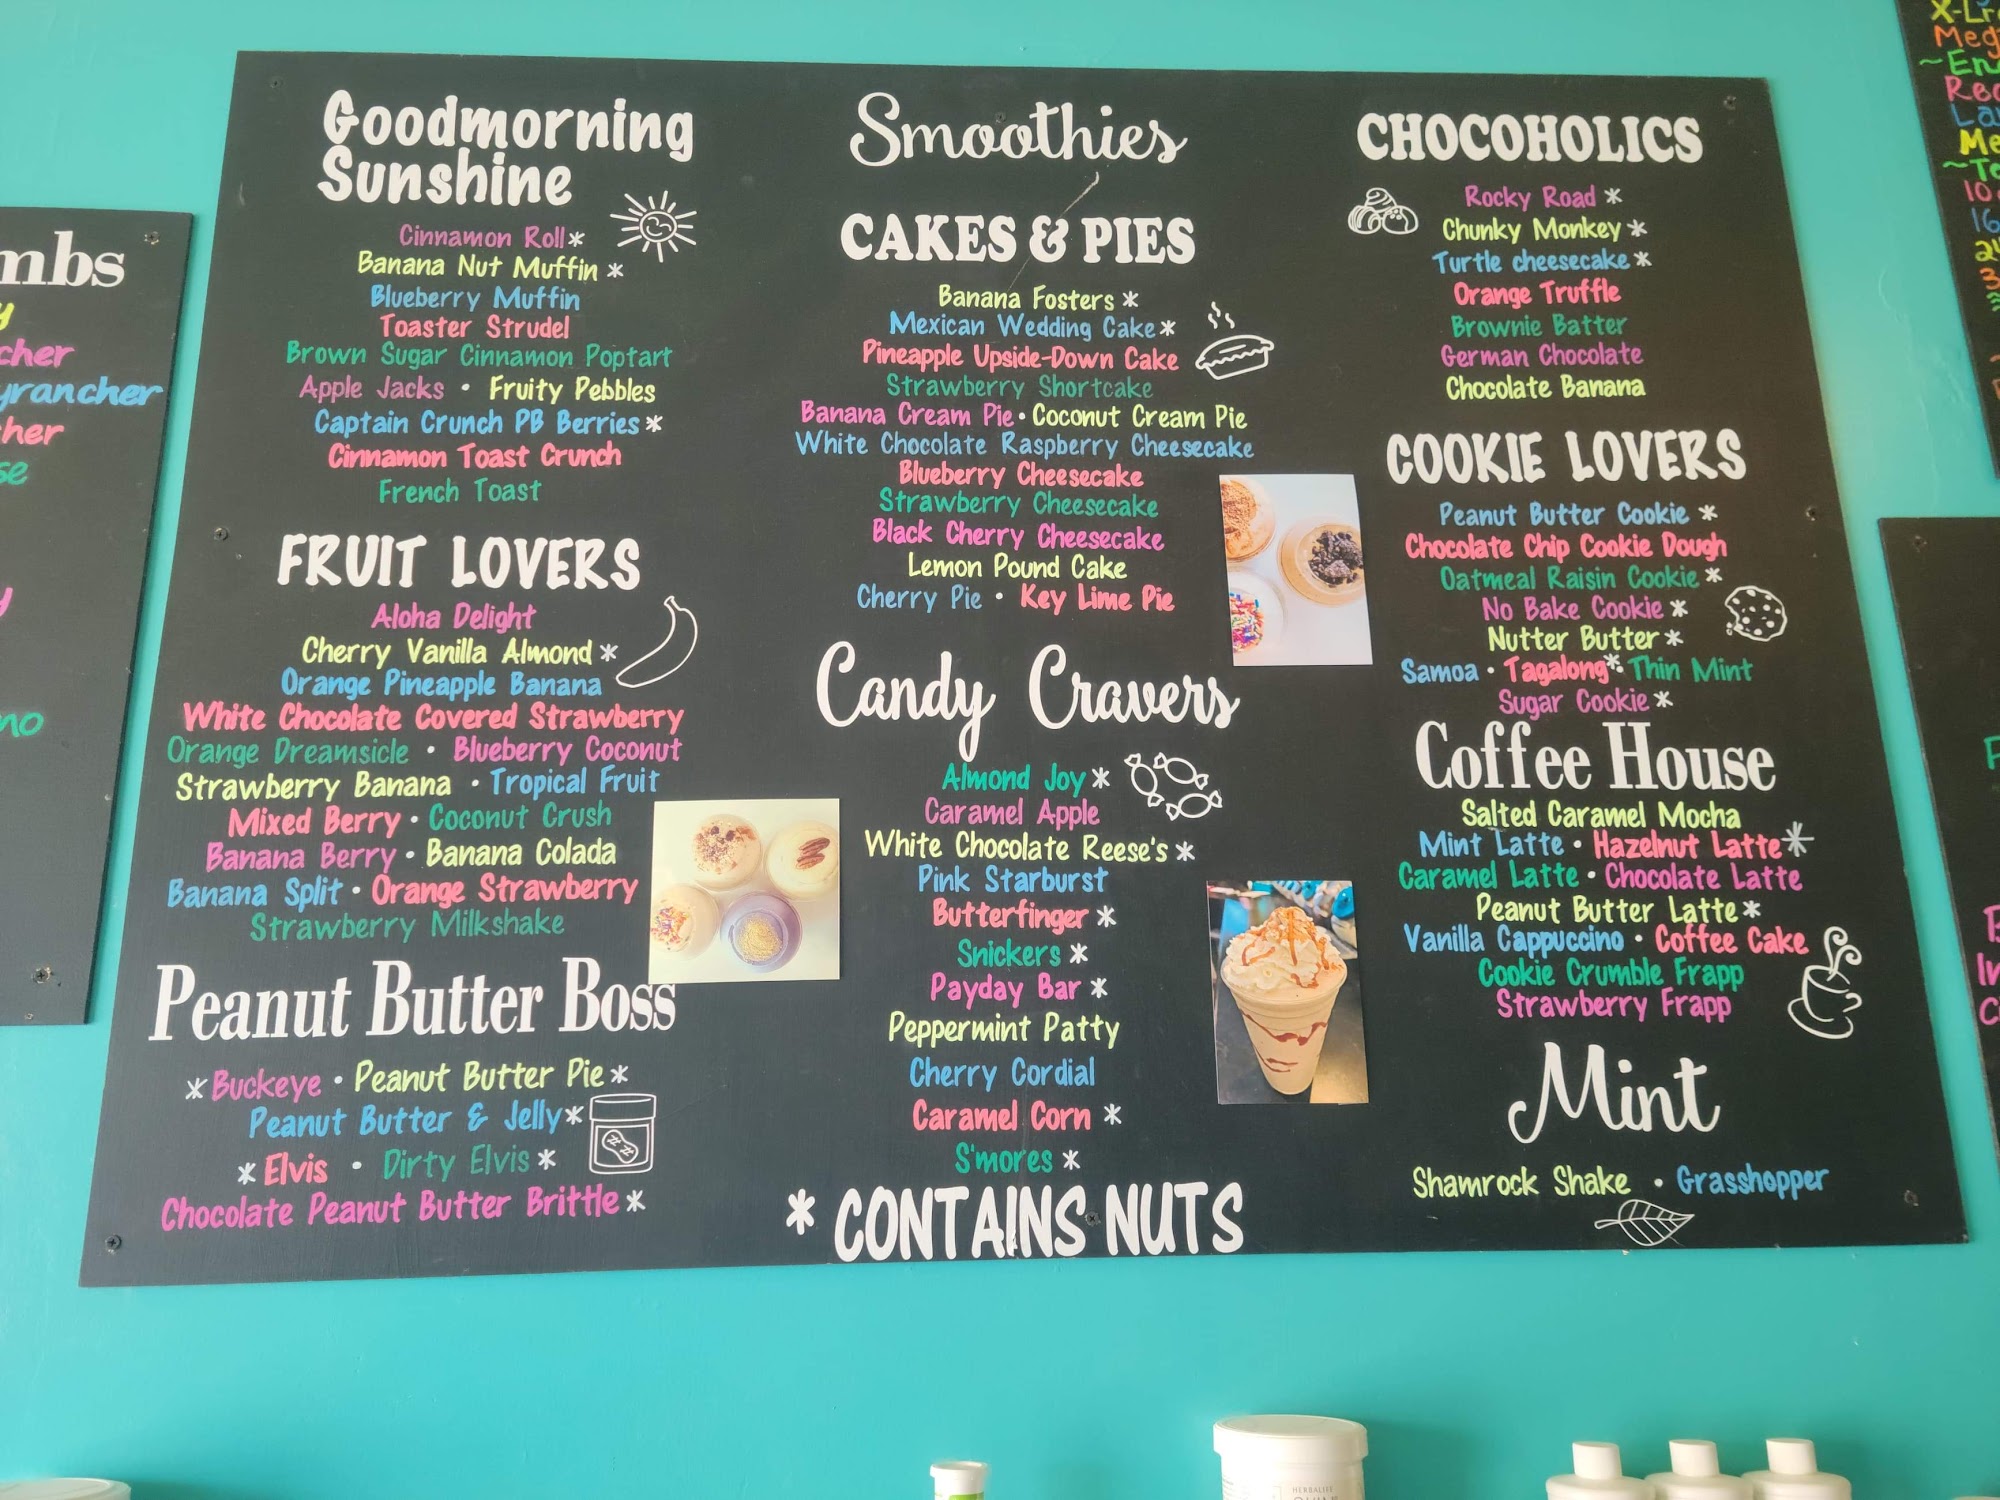 mbs
y
cher
yrancher
her
se
y
no
Goodmorning
Sunshine
Cinnamon Roll *
Banana Nut Muffin *
Blueberry Muffin
Toaster Strudel
Brown Sugar Cinnamon Poptart
Apple Jacks • Fruity Pebbles
Captain Crunch PB Berries *
Cinnamon Toast Crunch
French Toast
FRUIT LOVERS
Aloha Delight
Cherry Vanilla Almond *
Orange Pineapple Banana
White Chocolate Covered Strawberry
Orange Dreamsicle • Blueberry Coconut
Strawberry Banana • Tropical Fruit
Mixed Berry • Coconut Crush
Banana Berry • Banana Colada
Banana Split • Orange Strawberry
Strawberry Milkshake
Peanut Butter Boss
* Buckeye • Peanut Butter Pie *
Peanut Butter & Jelly *
* Elvis • Dirty Elvis *
Chocolate Peanut Butter Brittle *
Smoothies
CAKES & PIES
Banana Fosters *
Mexican Wedding Cake *
Pineapple Upside-Down Cake
Strawberry Shortcake
Banana Cream Pie • Coconut Cream Pie
White Chocolate Raspberry Cheesecake
Blueberry Cheesecake
Strawberry Cheesecake
Black Cherry Cheesecake
Lemon Pound Cake
Cherry Pie • Key Lime Pie
Candy Cravers
Almond Joy *
Caramel Apple
White Chocolate Reese's *
Pink Starburst
Butterfinger *
Snickers *
Payday Bar *
Peppermint Patty
Cherry Cordial
Caramel Corn *
S'mores *
* CONTAINS NUTS
CHOCOHOLICS
Rocky Road *
Chunky Monkey *
Turtle cheesecake *
Orange Truffle
Brownie Batter
German Chocolate
Chocolate Banana
COOKIE LOVERS
Peanut Butter Cookie *
Chocolate Chip Cookie Dough
Oatmeal Raisin Cookie *
No Bake Cookie *
Nutter Butter *
Samoa • Tagalong * • Thin Mint
Sugar Cookie *
Coffee House
Salted Caramel Mocha
Mint Latte • Hazelnut Latte *
Caramel Latte • Chocolate Latte
Peanut Butter Latte *
Vanilla Cappuccino • Coffee Cake
Cookie Crumble Frapp
Strawberry Frapp
Mint
Shamrock Shake • Grasshopper
X-Lr
Meg
~En
Rec
La
Me
~Te
10
16
HERBALIFE